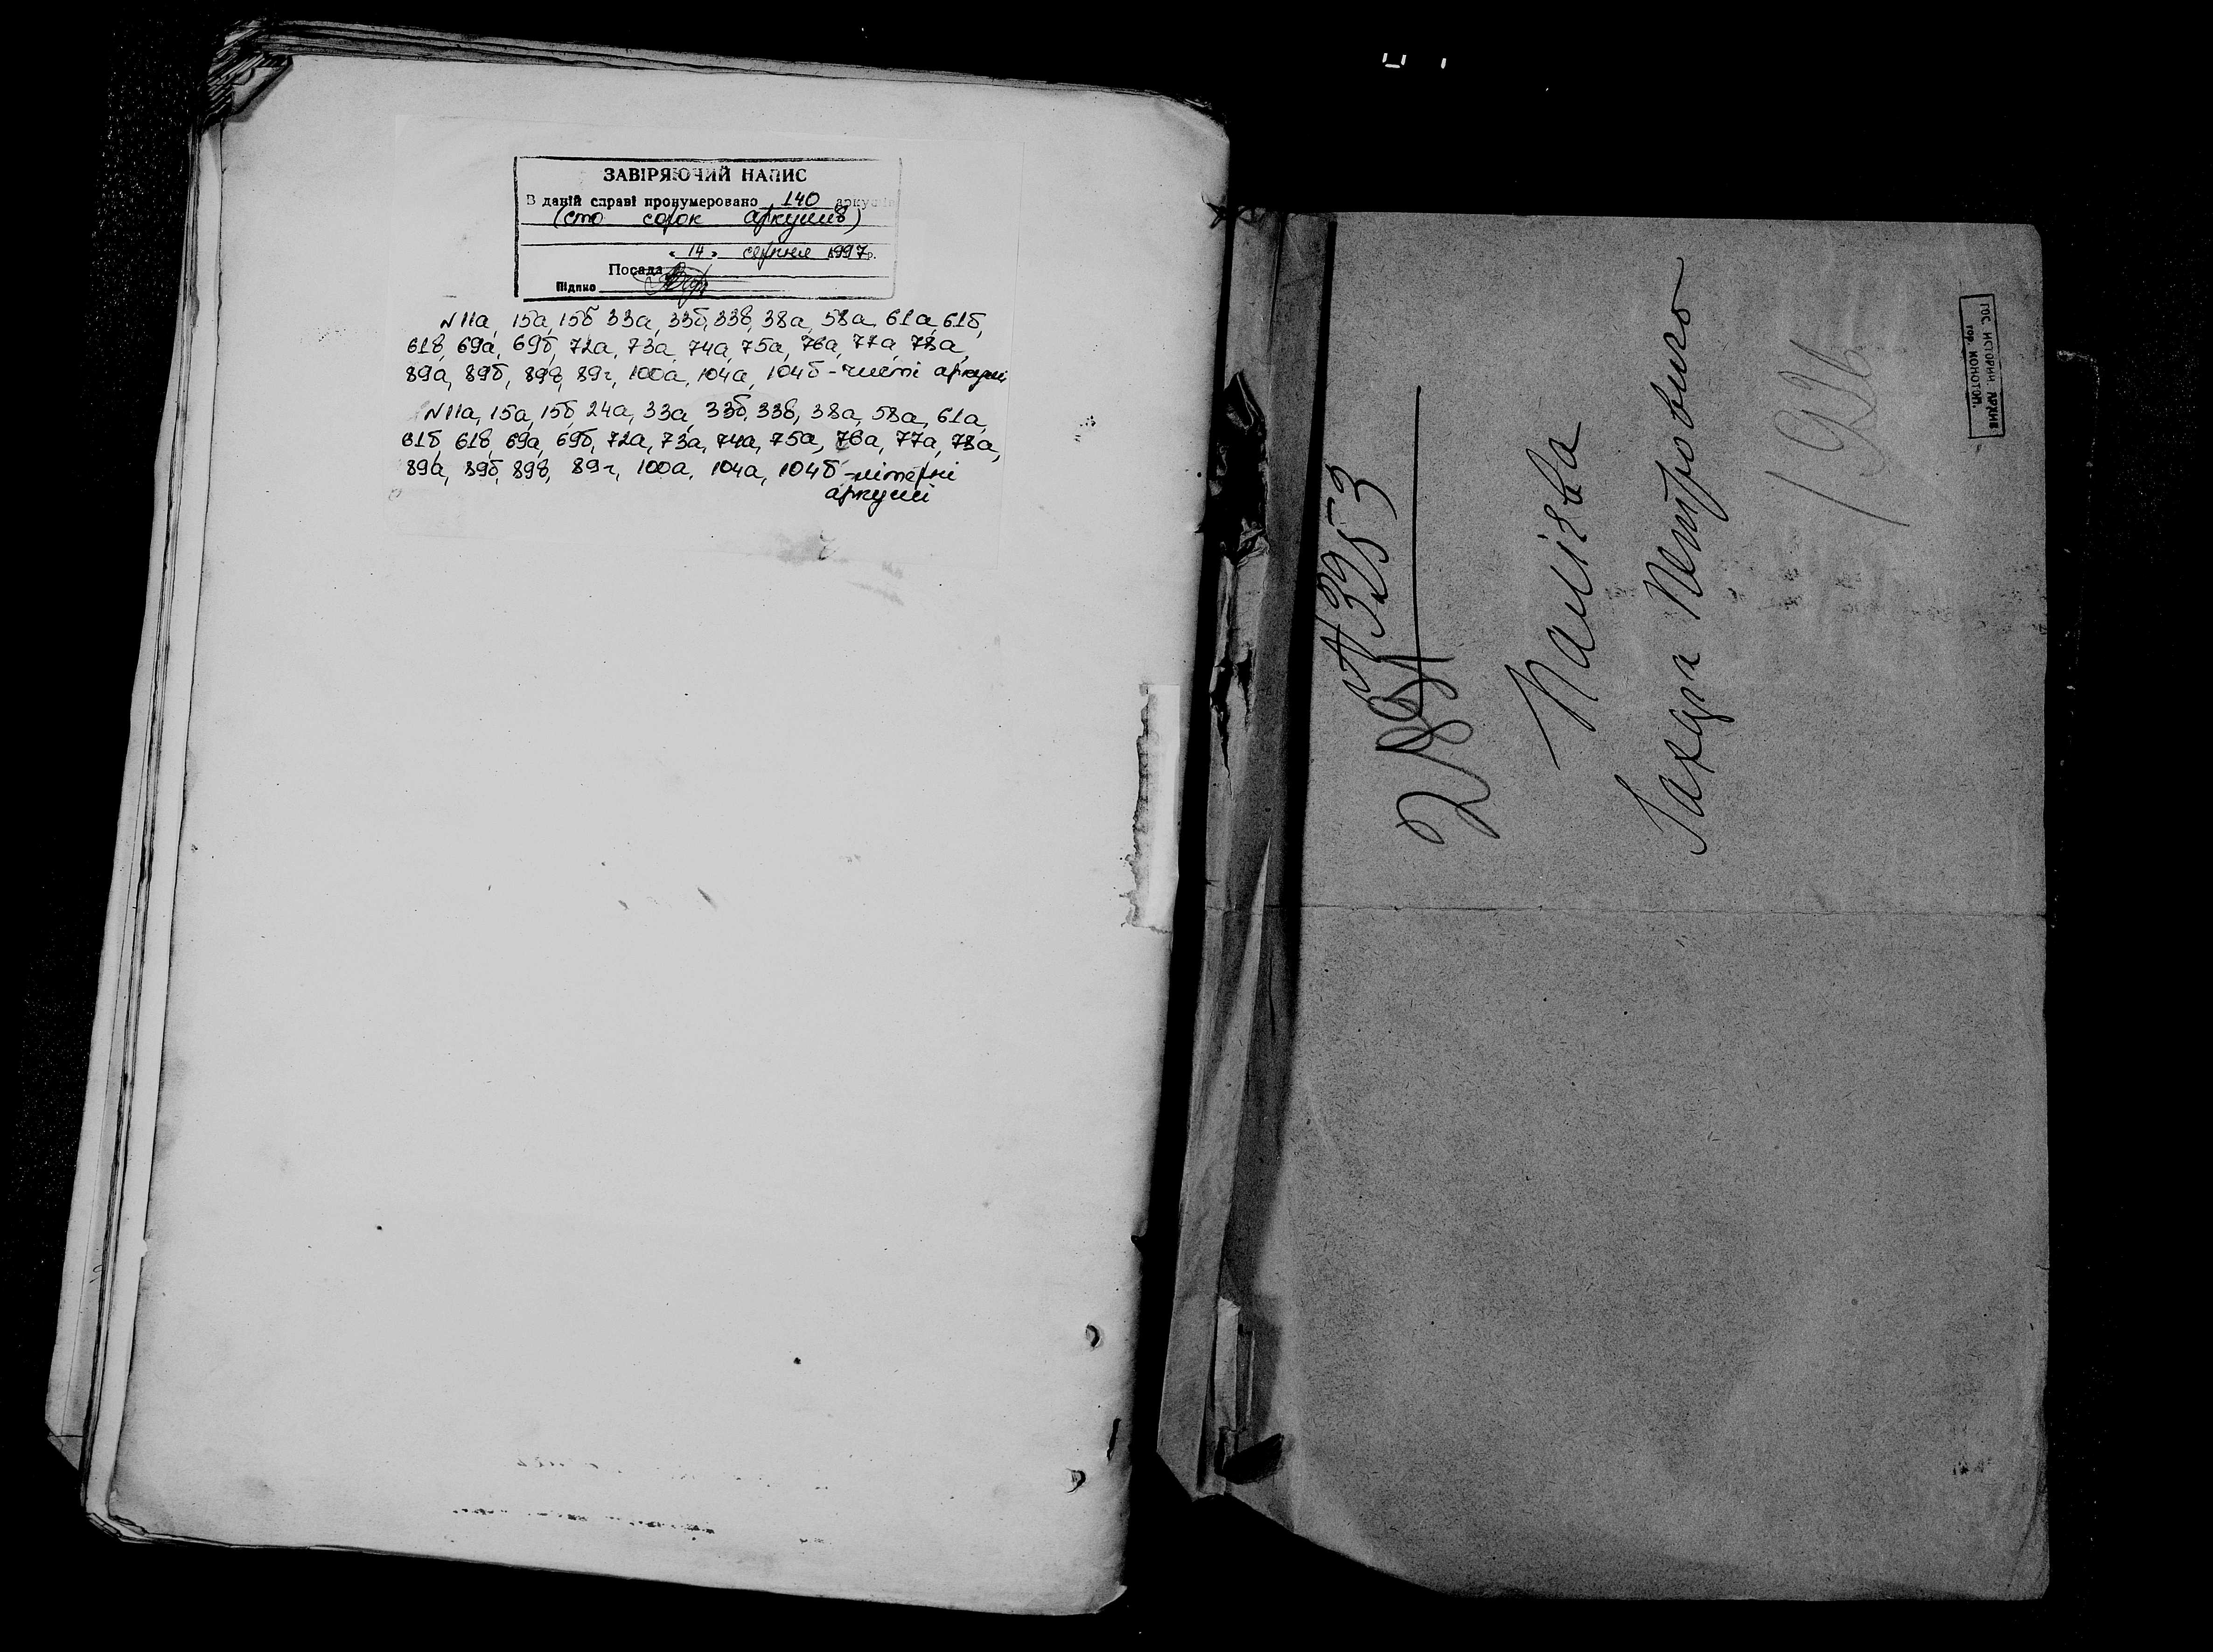 ЗАВІРЯЮЧИЙ НАПИС
В даній справі пронумеровано 140 аркушів
(сто сорок аркушів)
« 14 » серпня 1997р.
Посада
Підпис
N 11а, 15а, 15б 33а, 33б, 33в, 38а, 58а, 61а, 61б,
61в, 69а, 69б, 72а, 73а, 74а, 75а, 76а, 77а, 78а,
89а, 89б, 89в, 89г, 100а, 104а, 104б - чисті аркуші
N 11а, 15а, 15б, 24а, 33а, 33б, 33в, 38а, 58а, 61а,
61б, 61в, 69а, 69б, 72а, 73а, 74а, 75а, 76а, 77а, 78а,
89а, 89б, 89в, 89г, 100а, 104а, 104б - літерні
аркуші
№ 3953
Петровича
ГОС. ИСТОРИЧ. АРХИВ
гор. КОНОТОП.